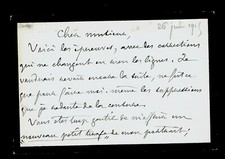 26 juin 1915
Cher monsieur,
Voici les épreuves, avec les corrections
qui ne changent en rien les lignes. Je
voudrais revoir encore la suite, ne fût-ce
que pour faire moi-même les suppressions
que je redoute de la censure.
Vous êtes trop gentil de m'offrir un
nouveau petit tirage de mon portrait;